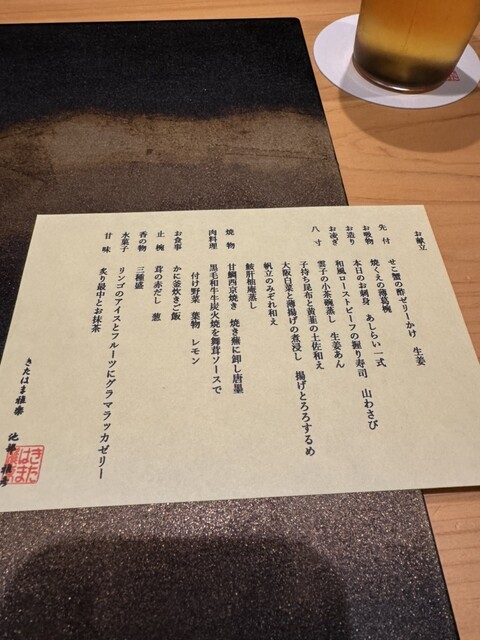 お献立
先付 せこ蟹の酢ゼリーかけ 生姜
お吸物 焼くえの薄葛椀
お造り 本日のお刺身 あしらい一式
お凌ぎ 和風ローストビーフの握り寿司 山わさび
八寸 雲子の小茶碗蒸し 生姜あん
子持ち昆布と黄韮の土佐和え
大阪白菜と薄揚げの煮浸し 揚げとろろするめ
帆立のみぞれ和え
鮟肝柚庵蒸し
焼物 甘鯛西京焼き 焼き蕪に卸し唐墨
肉料理 黒毛和牛炭火焼を舞茸ソースで
付け野菜 葉物 レモン
お食事 かに釜炊きご飯
止椀 茸の赤だし 葱
香の物 三種盛
水菓子 リンゴのアイスとフルーツにグラマラッカゼリー
甘味 炙り最中とお抹茶
きたはま
きたはま